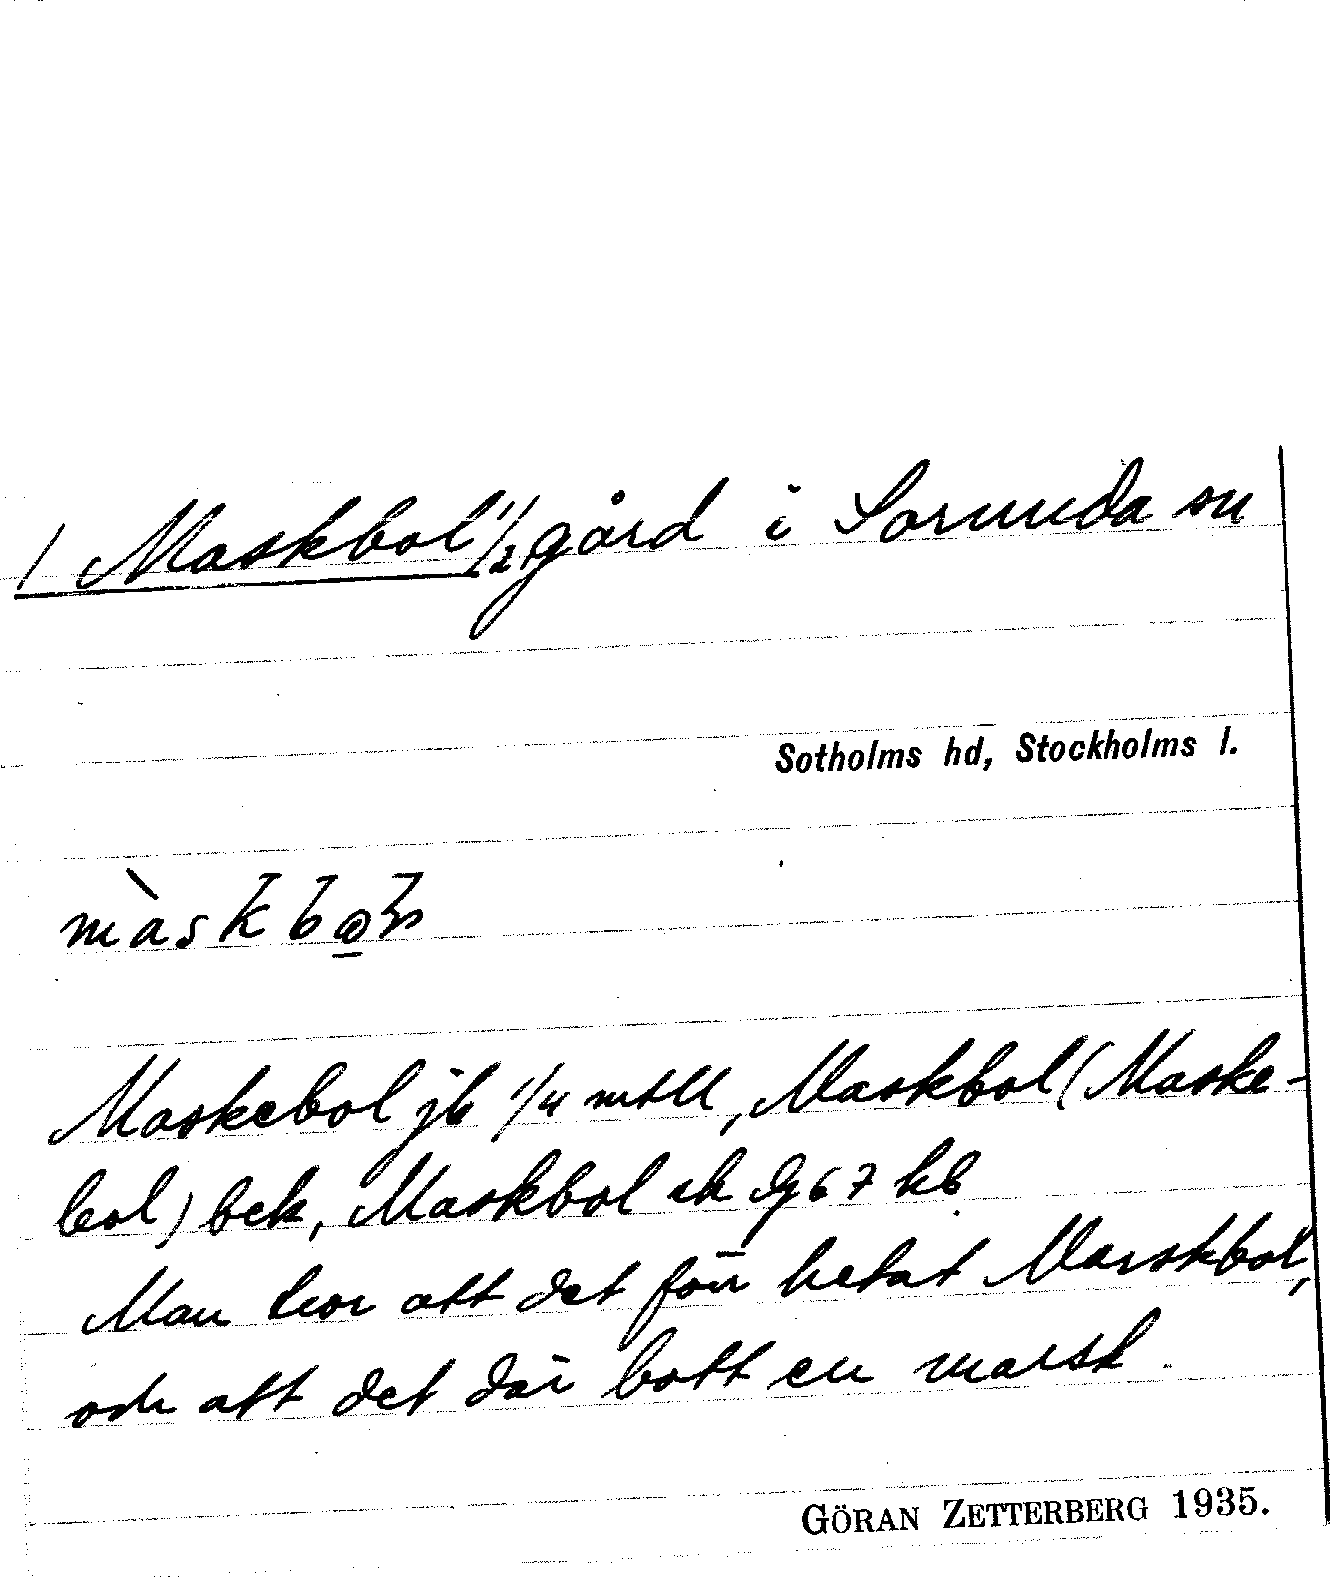 1 Maskbol 1/2 gård i Sorunda sn
Sotholms hd, Stockholms l.
Maskebol jb 1/4 mtll, Maskbol (Maske-
bol) bek, Maskbol ek 67 kb
Man tror att det förr hetat Marskbol,
och att det där bott en marsk.
GÖRAN ZETTERBERG 1935.